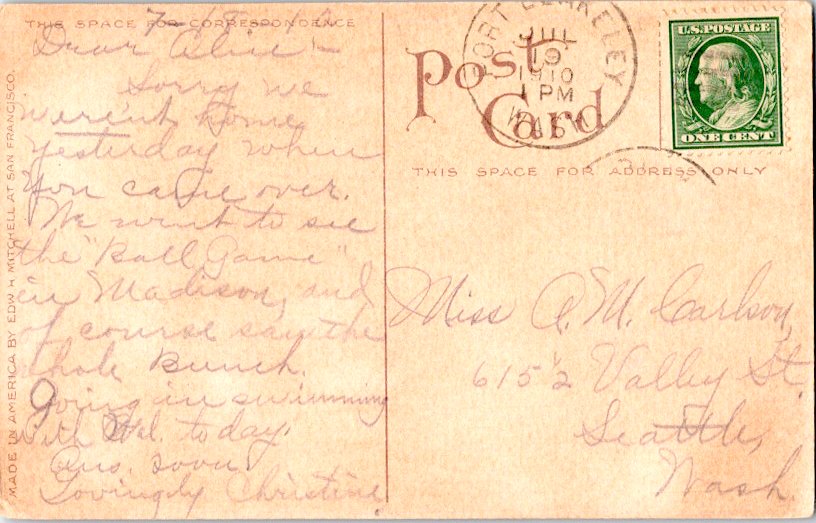 THIS SPACE FOR CORRESPONDENCE
Dear Alice:-
Sorry we
weren't home
yesterday when
you came over.
We went to see
the "Ball Game"
in Madison, and
of course saw the
whole Bunch.
Going in swimming
with today.
Ans. soon
Lovingly Christine
MADE IN AMERICA BY EDW H MITCHELL AT SAN FRANCISCO.
Post Card
PORT BLAKELEY
JUL
19
1910
1 PM
WASH.
U.S. POSTAGE
ONE CENT
THIS SPACE FOR ADDRESS ONLY
Miss A. M. Carlson,
615½ Valley St.
Seattle,
Wash.